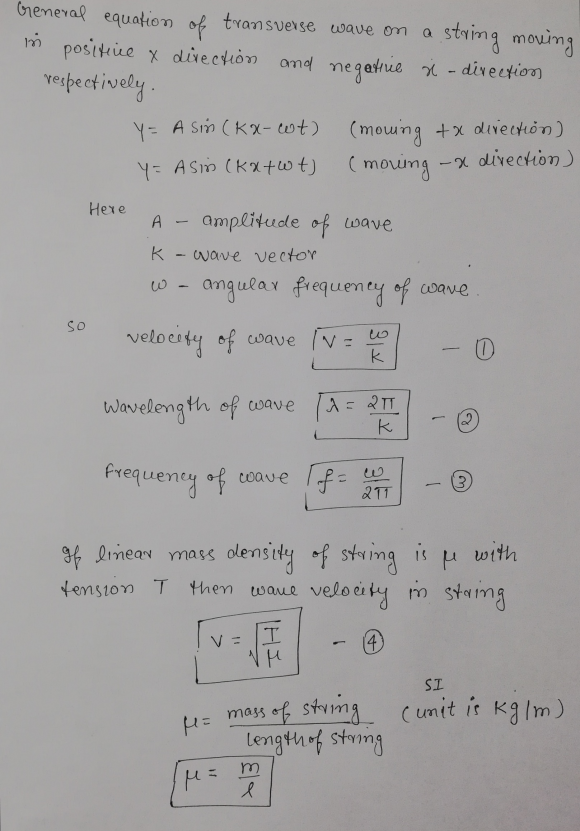 General equation of transverse wave on a string moving
in positive x direction and negative x - direction
respectively.
Y = A sin (Kx - ωt) (moving +x direction)
Y = A sin (Kx + ωt) (moving -x direction)
Here
A - amplitude of wave
K - wave vector
ω - angular frequency of wave.
so velocity of wave V = ω/k - ①
Wavelength of wave λ = 2π/K - ②
frequency of wave f = ω/2π - ③
If linear mass density of string is μ with
tension T then wave velocity in string
V = √(T/μ) - ④
μ = mass of string / length of string (SI unit is Kg/m)
μ = m/l